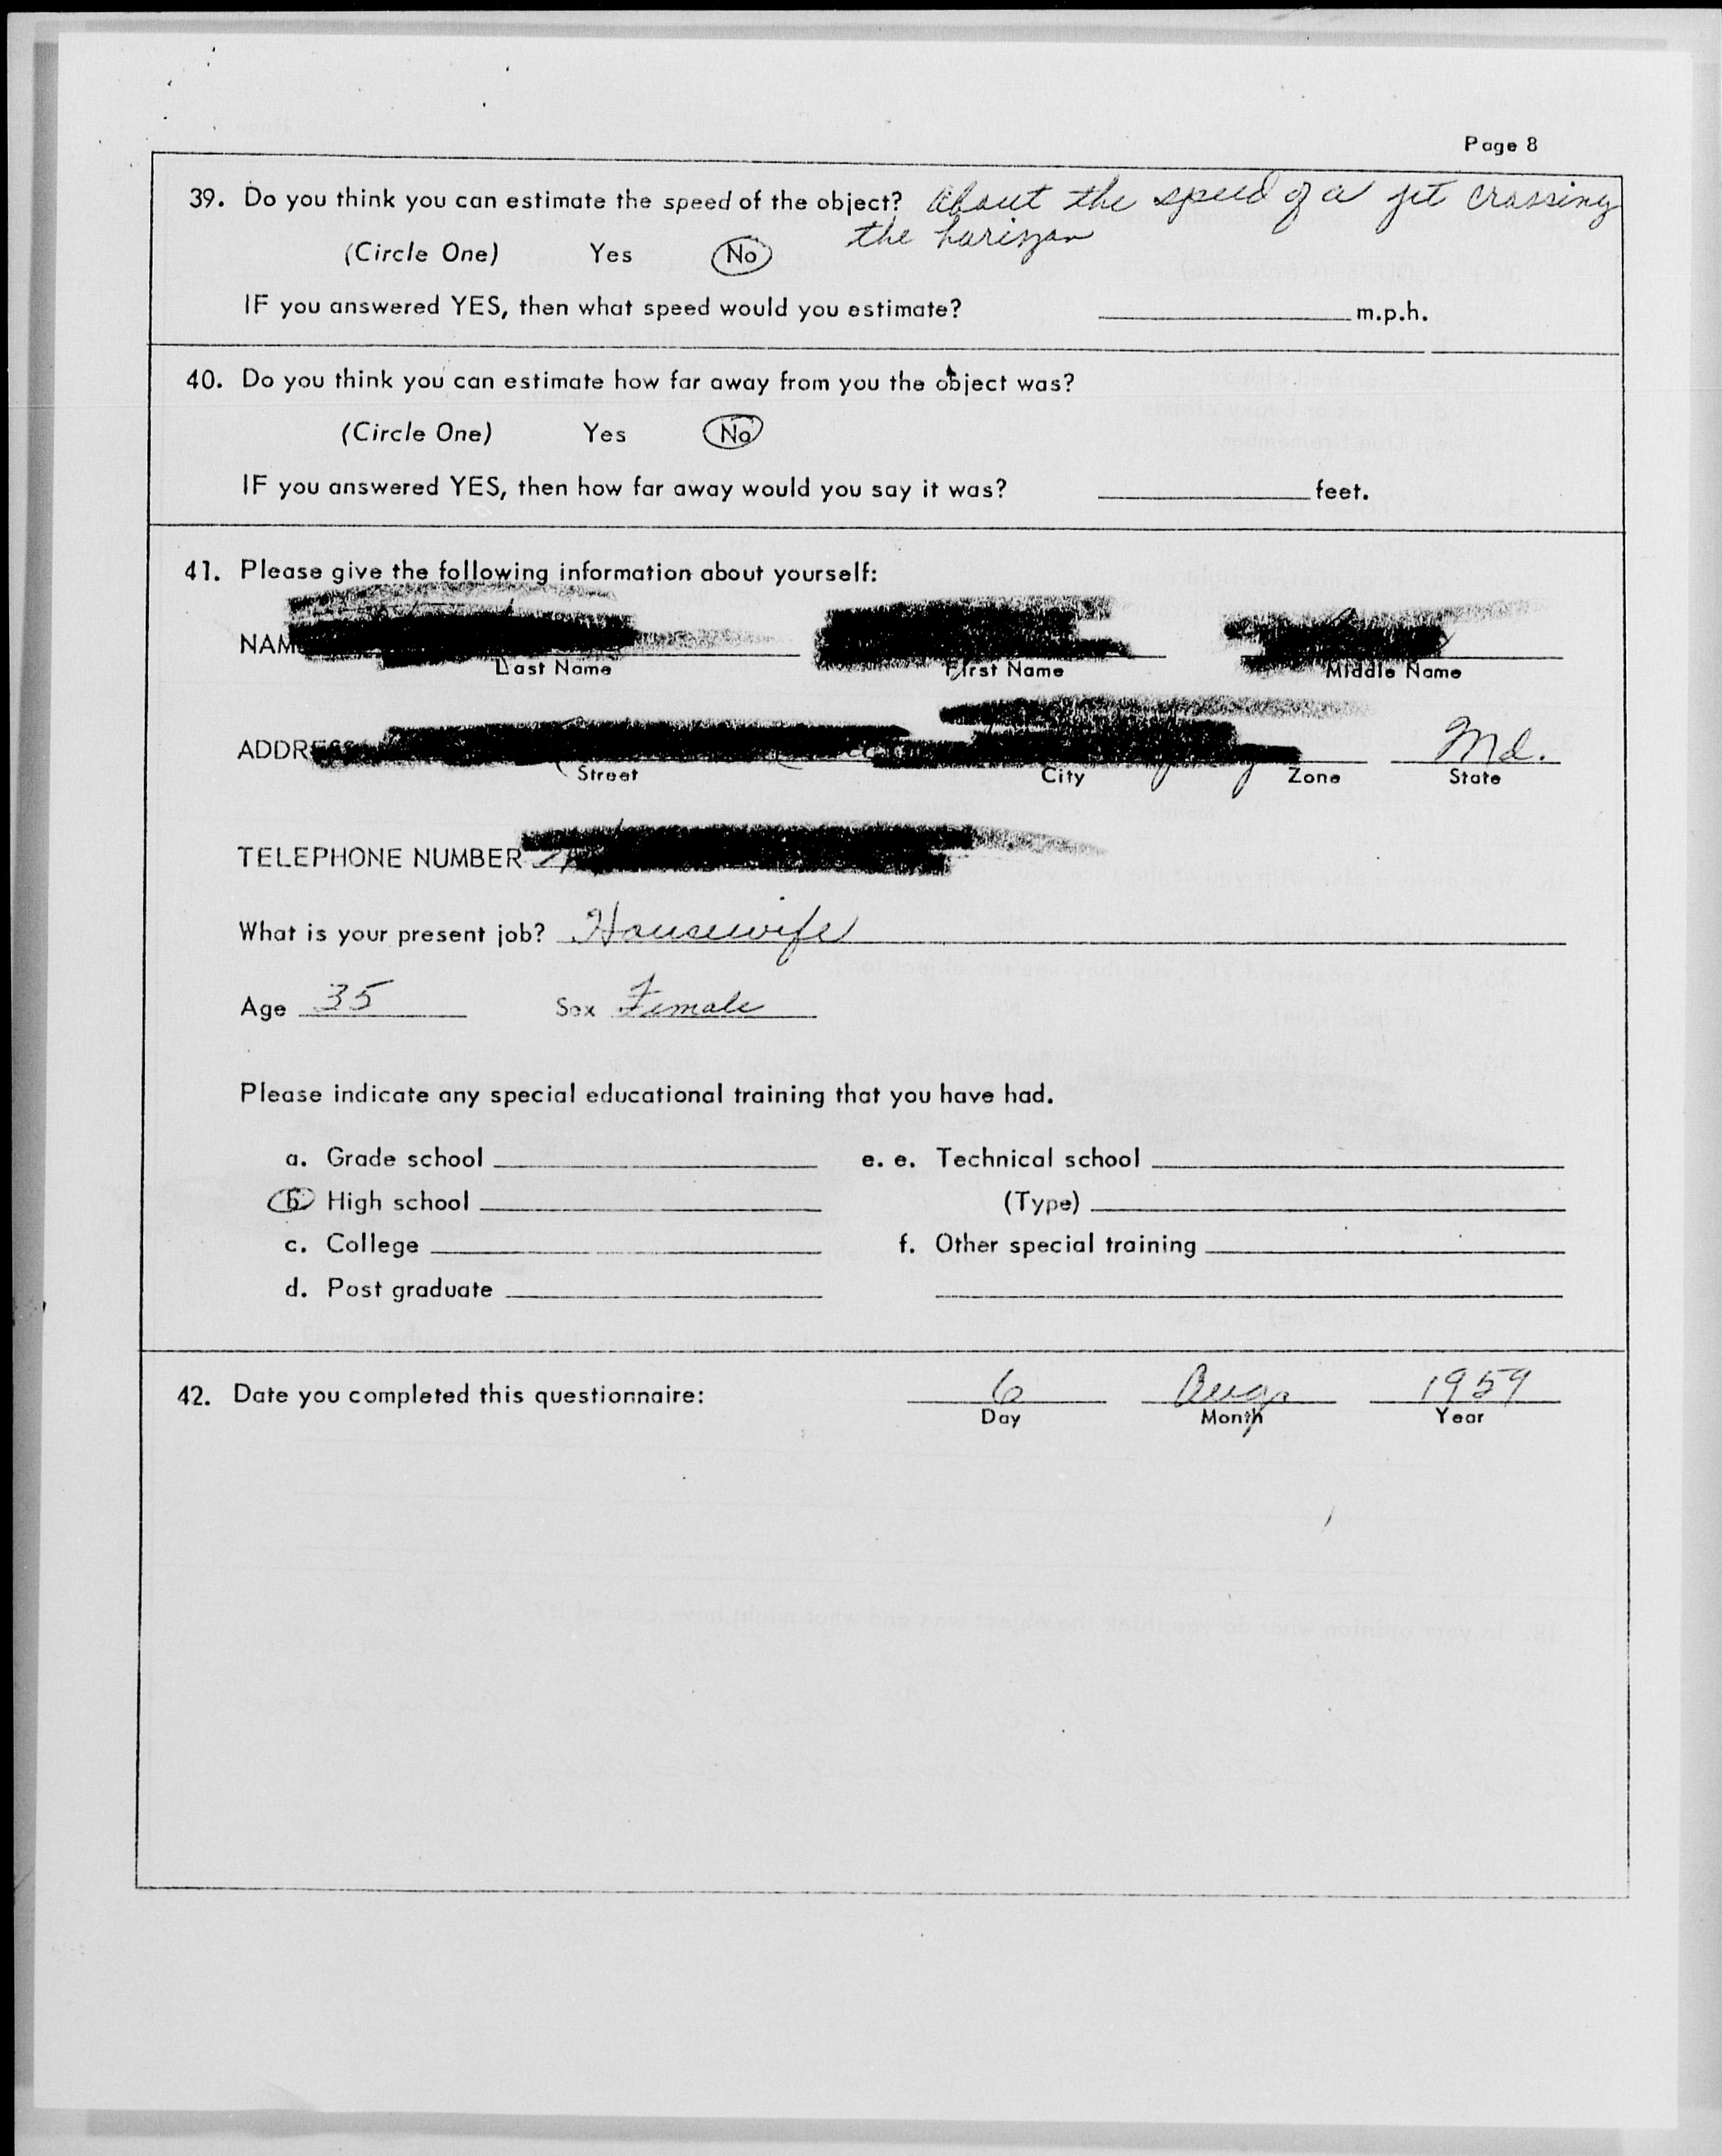 Page 8
39. Do you think you can estimate the speed of the object? About the speed of a jet crossing
the horizon
(Circle One) Yes No
IF you answered YES, then what speed would you estimate? m.p.h.
40. Do you think you can estimate how far away from you the object was?
(Circle One) Yes No
IF you answered YES, then how far away would you say it was? feet.
41. Please give the following information about yourself:
NAM
Last Name First Name Middle Name
ADDRESS Md.
Street City Zone State
TELEPHONE NUMBER
What is your present job? Housewife
Age 35 Sex Female
Please indicate any special educational training that you have had.
a. Grade school e. e. Technical school
b. High school (Type)
c. College f. Other special training
d. Post graduate
42. Date you completed this questionnaire: 6 Aug. 1959
Day Month Year